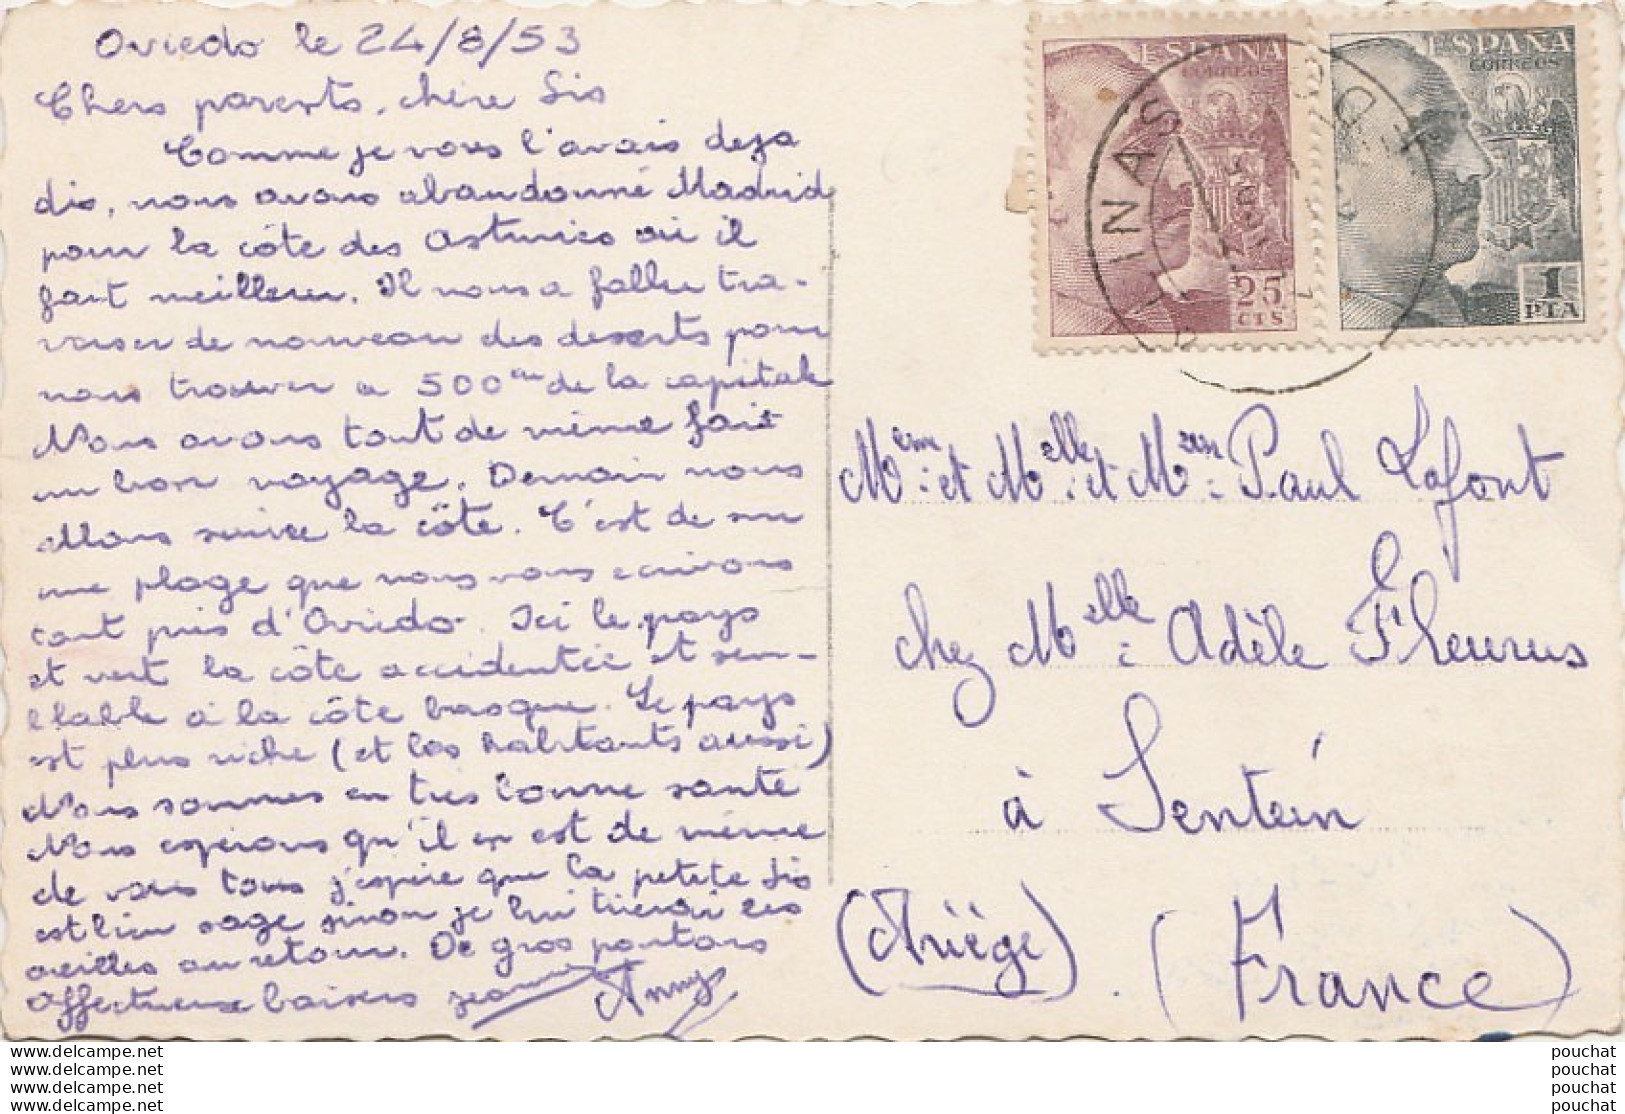 Oviedo le 24/8/53
Chers parents, chère Sis
Comme je vous l'avais deja
dis, nous avons abandonné Madrid
pour la côte des Asturies où il
fait meilleur. Il nous a fallu tra-
verser de nouveau des deserts pour
nous trouver a 500 de la capitale
Nous avons tout de même fait
un bon voyage. Demain nous
allons suivre la côte. C'est de sur
une plage que nous vous ecrivons
tout près d'Oviedo. Ici le pays
est vert la côte accidentée et sem-
blable à la côte basque. Le pays
est plus riche (et les habitants aussi)
Nous sommes en très bonne santé
Nous espérons qu'il en est de même
de vous tous j'espère que la petite Sis
est bien sage sinon je lui tirerai les
oreilles au retour. De gros poutous
Affectueux baisers Jeanne Anny
ESPAÑA
CORREOS
25
CTS
ESPAÑA
CORREOS
1
PTA
SALINAS
Mme: et Melle: et Mr: Paul Lafont
chez Melle: Adèle Fleurus
à Sentein
(Ariège) (France)
www.delcampe.net
www.delcampe.net
www.delcampe.net
www.delcampe.net
pouchat
pouchat
pouchat
pouchat